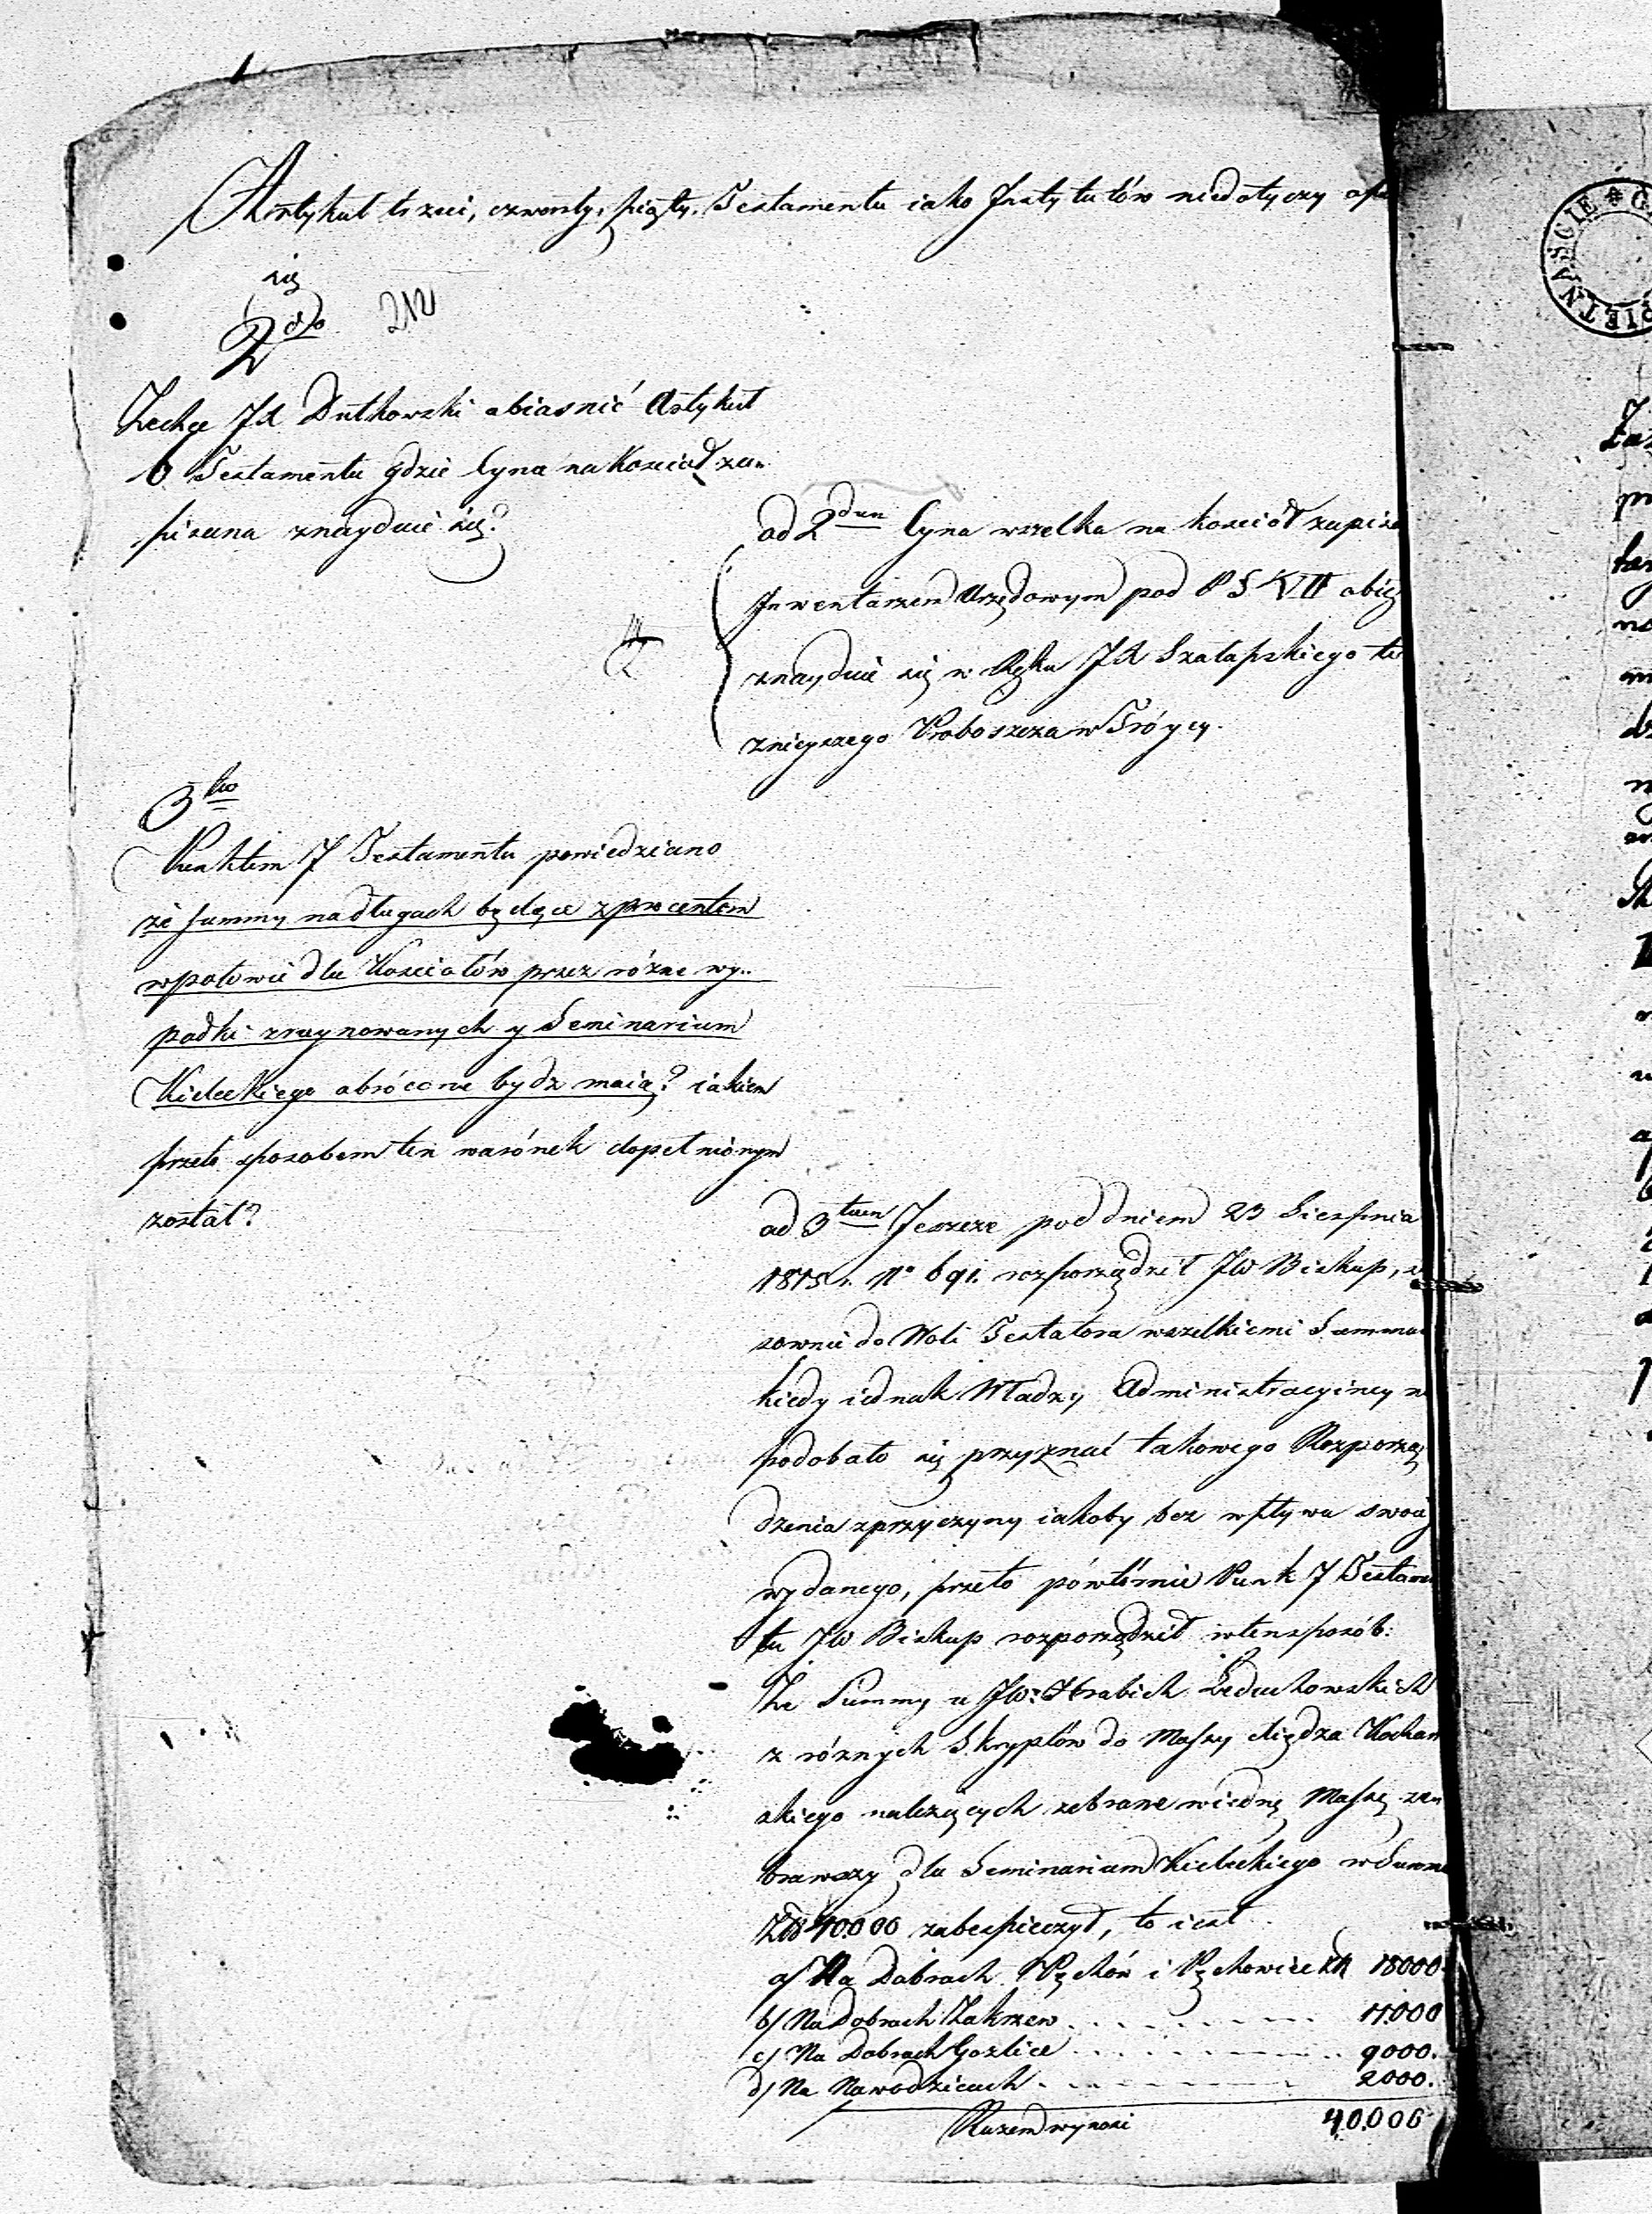 Artykuł trzeci, czwarty, piąty, Testamentu iako Instytutów niedotyczy
się
2do
Zechce JX Dutkowski obiasnić Artykuł
6 Testamentu gdzie Cyna na Kosciół za„
pisana znayduie się?
ad 2dum Cyna wszelka na kosciół zapisa
Inwentarzem Urzędowym pod
znayduie się w Ręku JX Szałapskiego te
znieyszego Proboszcza w Tróycy.
3tio
Punktem 7 Testamentu powiedziano
że summy na długach będące z procentem
w połowie dla Kosciołów przez różne wy„
padki zruynowanych y Seminarium
Kieleckiego obrócone bydz maią? iakiem
przeto sposobem ten warónek dopełnionym
został?
ad 3tium Jeszcze pod dniem 23 Sierpnia
1815 r. No 691. rozporządził JW Biskup,
sownie do Woli Testatora wszelkiemi Summa
kiedy iednak Władzy Administracyiney
podobało się przyznać takowego Rozporzą
dzenia z przyczyny iakoby bez wpływu swoi
wydanego, przeto powtórnie Punk 7 Testamen
tu JW Biskup rozporządził w ten sposób:
Ze Summy u JW: Hrabich Leduchowskich
z róznych Skryptów do Massy Xiędza Kochan
skiego nalezących zebrane w iednę Massę
brawszy dla Seminarium Kieleckiego w Summ
Złp 40.000 zabespieczył, to iest
a/ Na Dobrach Pęchów i Pęchowiec 18000
b/ Na Dobrach Zakrzew 11.000
c/ Na Dobrach Gozlice 9000.
d/ Na Nawodzicach 2000.
Razem wynosi 40.000